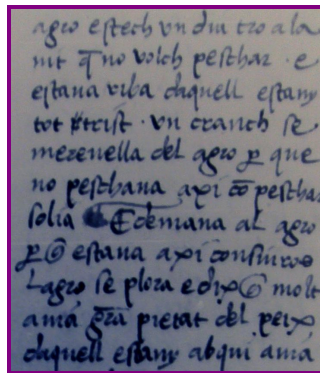 agro estech vn dia tro a la
nit q̄ no volch peschar · e
estaua riba daquell estany
tot trist · vn cranch se
merauella del agro ꝑ que
no peschaua axi cō peschar
solia E demana al agro
ꝑ q̄ estaua axi consiros
Lagro se plora e dix q̄ molt
auia grā pietat del peix
daquell estany ab qui auia